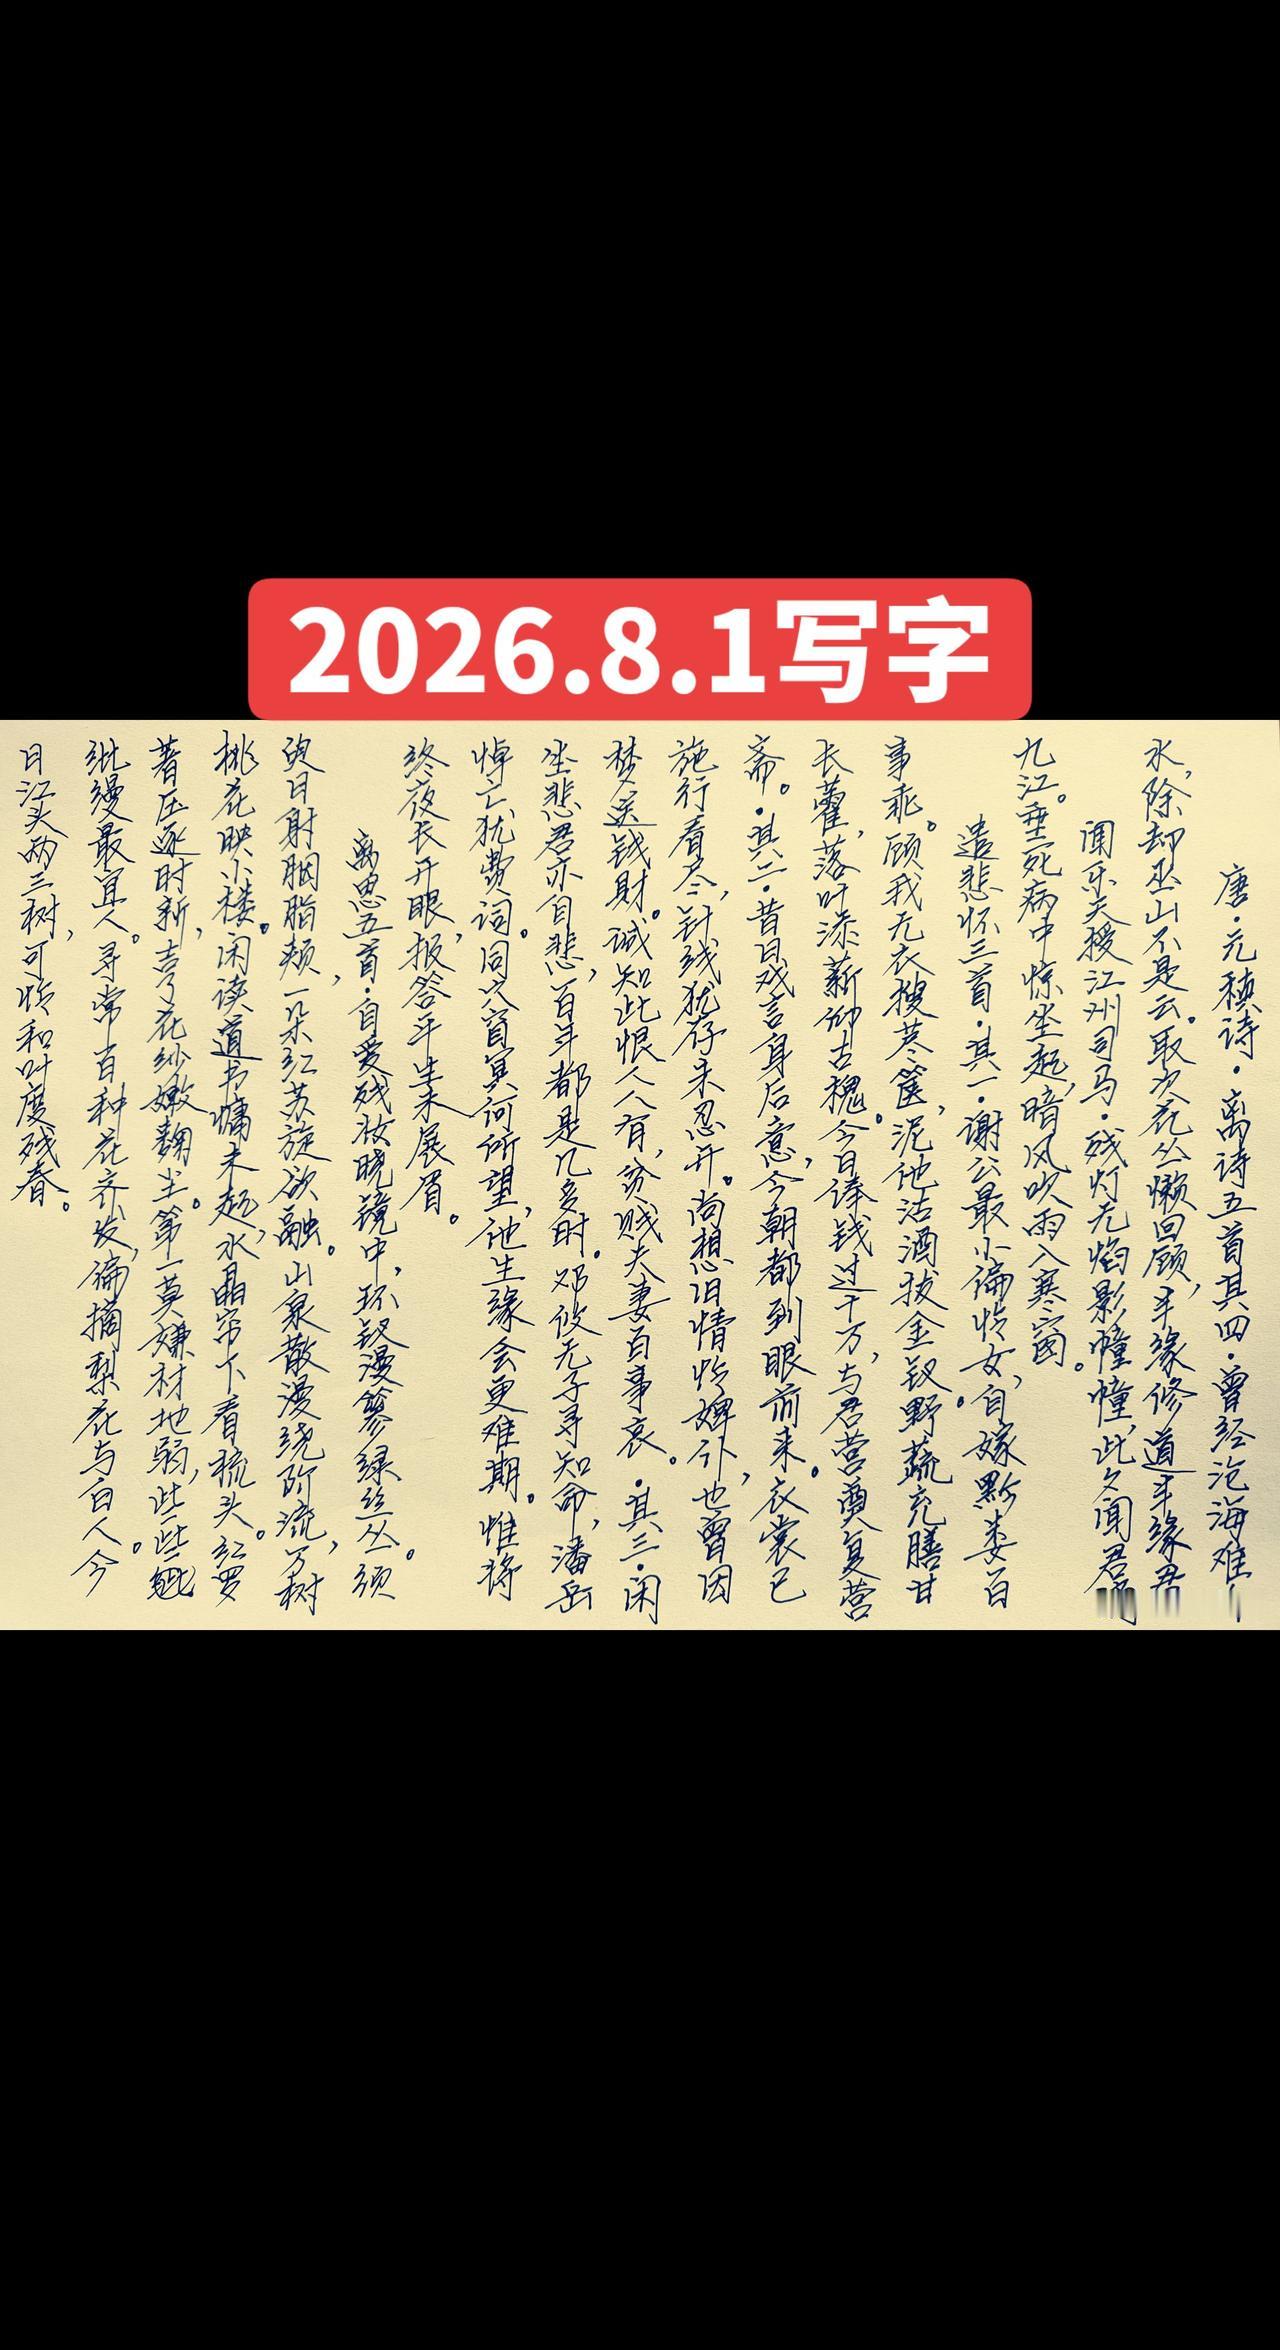 2026.8.1写字
唐·元稹诗·离诗五首其四·曾经沧海难
水，除却巫山不是云。取次花丛懒回顾，半缘修道半缘君
闻乐天授江州司马·残灯无焰影幢幢，此夕闻君
九江。垂死病中惊坐起，暗风吹雨入寒窗。
遣悲怀三首·其一·谢公最小偏怜女，自嫁黔娄百
事乖。顾我无衣搜荩箧，泥他沽酒拔金钗。野蔬充膳甘
长藿，落叶添薪仰古槐。今日俸钱过千万，与君营奠复营
斋。·其二·昔日戏言身后意，今朝都到眼前来。衣裳已
施行看尽，针线犹存未忍开。尚想旧情怜婢仆，也曾因
梦送钱财。诚知此恨人人有，贫贱夫妻百事哀。·其三·闲
坐悲君亦自悲，百年都是几多时。邓攸无子寻知命，潘岳
悼亡犹费词。同穴窅冥何所望，他生缘会更难期。惟将
终夜长开眼，报答平生未展眉。
离思五首·自爱残妆晓镜中，环钗漫篸绿丝丛。须
臾日射胭脂颊，一朵红苏旋欲融。山泉散漫绕阶流，万树
桃花映小楼。闲读道书慵未起，水晶帘下看梳头。红罗
著压逐时新，吉了花纱嫩麴尘。第一莫嫌材地弱，些些
纰缦最宜人。寻常百种花齐发，偏摘梨花与白人。今
日江头两三树，可怜和叶度残春。